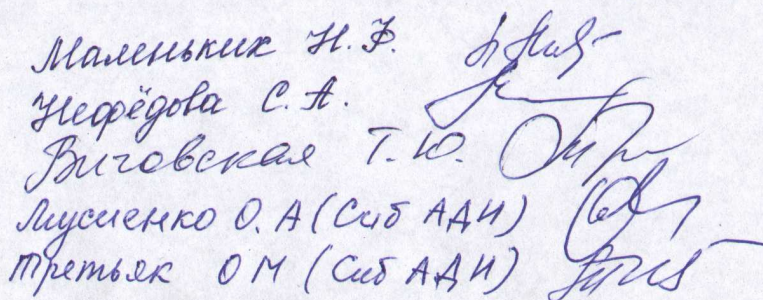 Маленьких Н. Ф.
Нефёдова С. А.
Виговская Т. Ю.
Мусиенко О. А (Сиб АДИ)
Третьяк О М (Сиб АДИ)